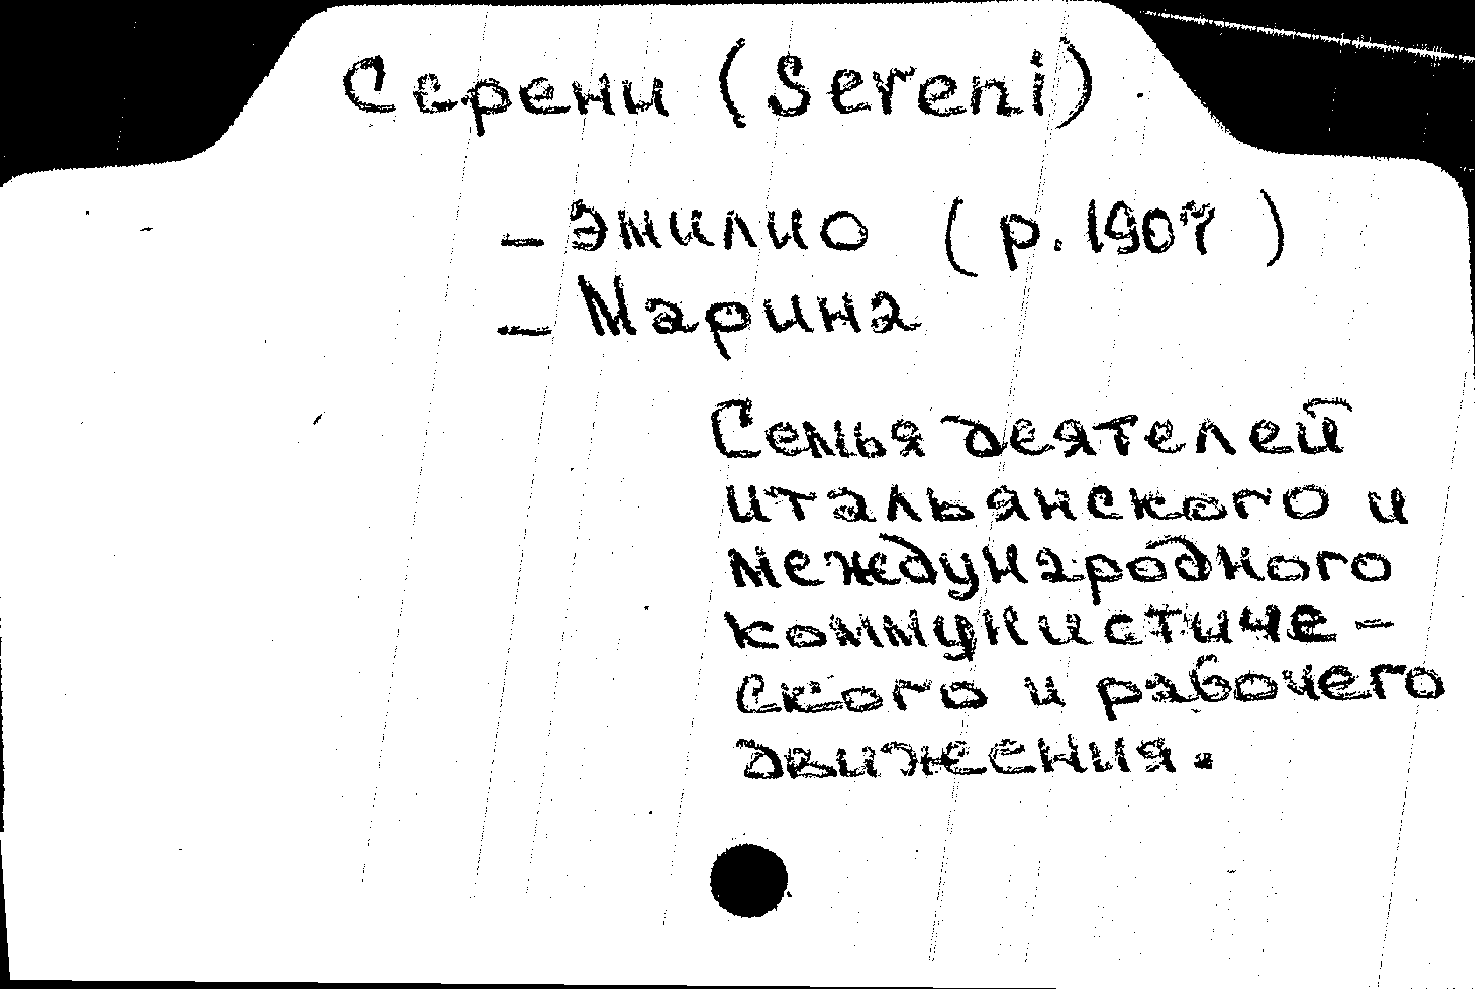 Серени (Sereni)
- Эмилио (р. 1907)
- Марина
Семья деятелей
итальянского и
международного
коммунистиче-
ского и рабочего
движения.